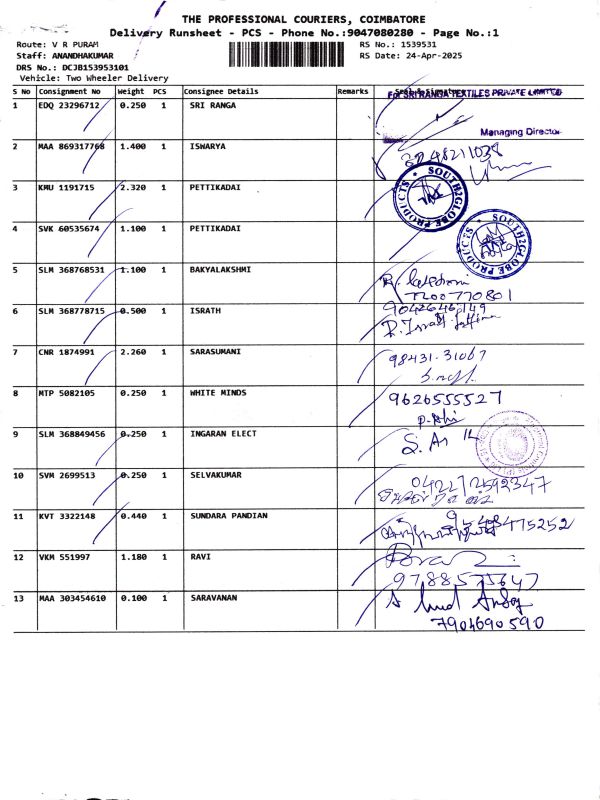 THE PROFESSIONAL COURIERS, COIMBATORE
Delivery Runsheet - PCS - Phone No.:9047080280 - Page No.:1
Route: V R PURAM
RS No.: 1539531
Staff: ANANDHAKUMAR
RS Date: 24-Apr-2025
DRS No.: DCJB153953101
Vehicle: Two Wheeler Delivery
S No Consignment No Weight PCS Consignee Details Remarks
For SRI RANGA TEXTILES PRIVATE LIMITED
1 EDQ 23296712 0.250 1 SRI RANGA
Managing Director
2 MAA 869317768 1.400 1 ISWARYA
3 KMU 1191715 2.320 1 PETTIKADAI
SOUTH2GLOBE PRODUCTS
4 SVK 60535674 1.100 1 PETTIKADAI
SOUTH2GLOBE PRODUCTS
5 SLM 368768531 1.100 1 BAKYALAKSHMI
6 SLM 368778715 0.500 1 ISRATH
7 CNR 1874991 2.260 1 SARASUMANI
98431-31067
8 MTP 5082105 0.250 1 WHITE MINDS
9626555527
9 SLM 368849456 0.250 1 INGARAN ELECT
10 SVM 2699513 0.250 1 SELVAKUMAR
0422/2592347
11 KVT 3322148 0.440 1 SUNDARA PANDIAN
12 VKM 551997 1.180 1 RAVI
13 MAA 303454610 0.100 1 SARAVANAN
7904690590